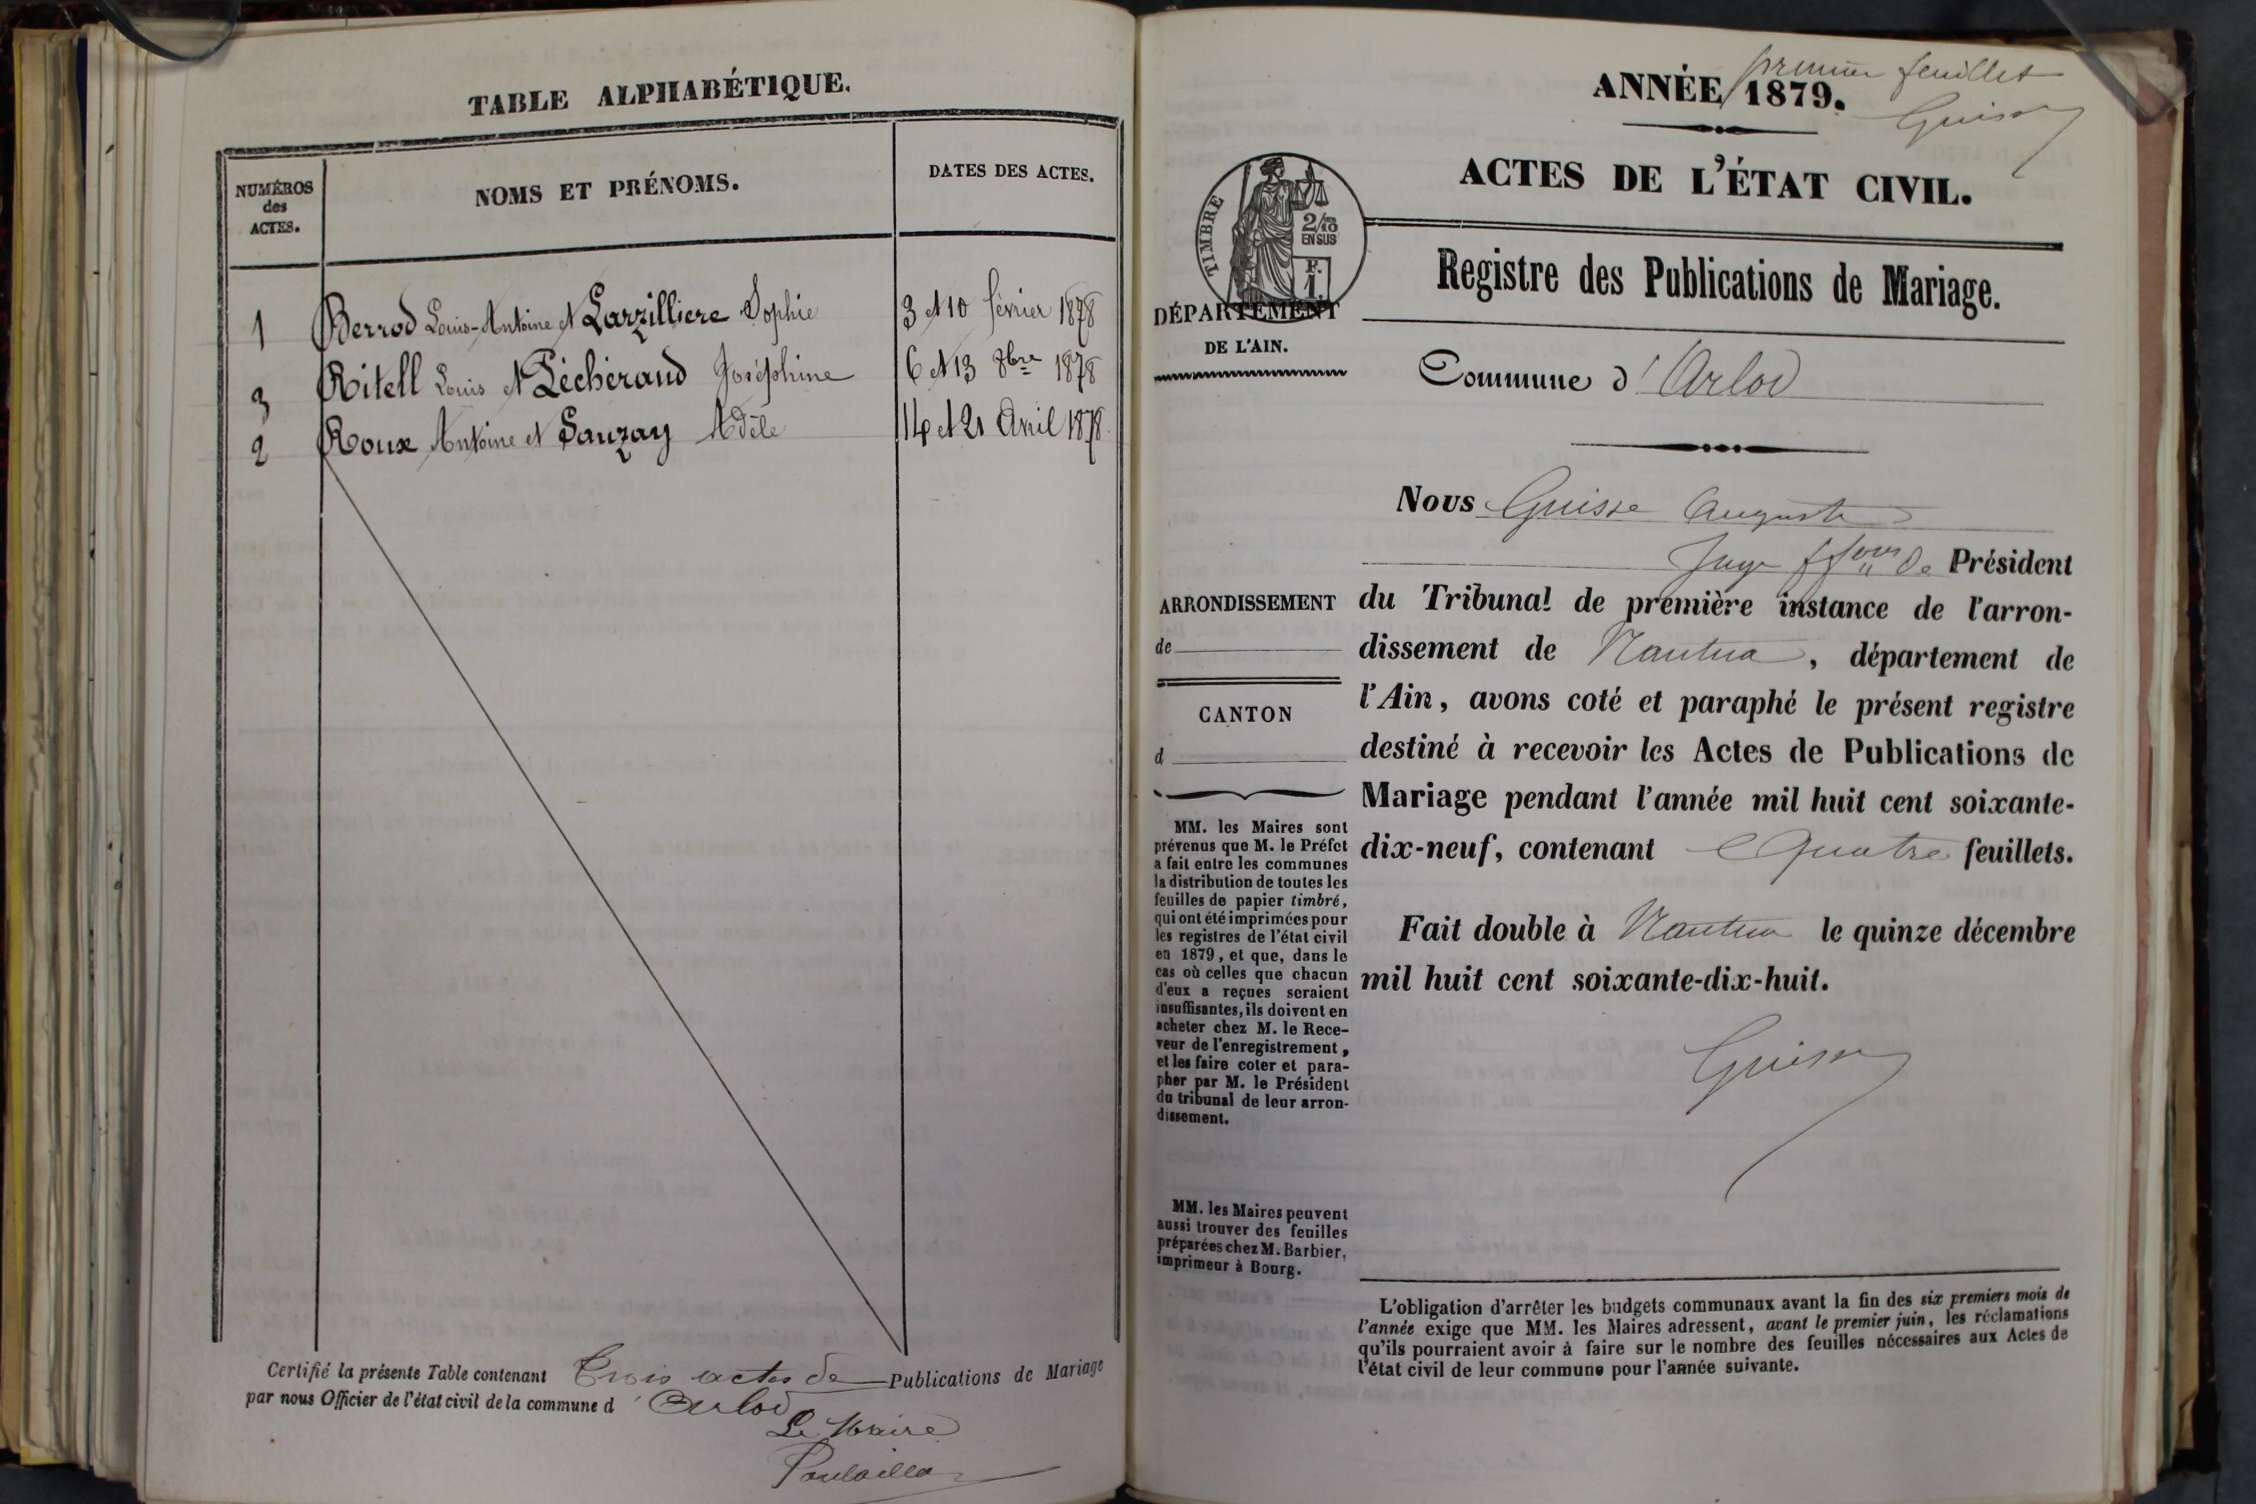 TABLE ALPHABÉTIQUE.
NUMÉROS
des
ACTES.
NOMS ET PRÉNOMS.
DATES DES ACTES.
1 Berrod Louis-Antoine et Larzilliere Sophie 3 et 10 février 1878
3 Ritell Louis et Pécherand Joséphine 6 et 13 8bre 1878
2 Roux Antoine et Sauzay Adèle 14 et 21 Avril 1878.
Certifié la présente Table contenant Trois actes de Publications de Mariage
par nous Officier de l'état civil de la commune d'Arlod
Le Maire
premier feuillet
ANNÉE 1879.
Guisse
ACTES DE L'ÉTAT CIVIL.
TIMBRE
2/10
EN SUS
F.
1
Registre des Publications de Mariage.
DÉPARTEMENT
DE L'AIN.
Commune d'Arlod
Nous Guisse Auguste
Juge ffons de Président
du Tribunal de première instance de l'arron-
dissement de Nantua, département de
l'Ain, avons coté et paraphé le présent registre
destiné à recevoir les Actes de Publications de
Mariage pendant l'année mil huit cent soixante-
dix-neuf, contenant Quatre feuillets.
Fait double à Nantua le quinze décembre
mil huit cent soixante-dix-huit.
Guisse
ARRONDISSEMENT
de
CANTON
d
MM. les Maires sont
prévenus que M. le Préfet
a fait entre les communes
la distribution de toutes les
feuilles de papier timbré,
qui ont été imprimées pour
les registres de l'état civil
en 1879, et que, dans le
cas où celles que chacun
d'eux a reçues seraient
insuffisantes, ils doivent en
acheter chez M. le Rece-
veur de l'enregistrement,
et les faire coter et para-
pher par M. le Président
du tribunal de leur arron-
dissement.
MM. les Maires peuvent
aussi trouver des feuilles
préparées chez M. Barbier,
imprimeur à Bourg.
L'obligation d'arrêter les budgets communaux avant la fin des six premiers mois de
l'année exige que MM. les Maires adressent, avant le premier juin, les réclamations
qu'ils pourraient avoir à faire sur le nombre des feuilles nécessaires aux Actes de
l'état civil de leur commune pour l'année suivante.